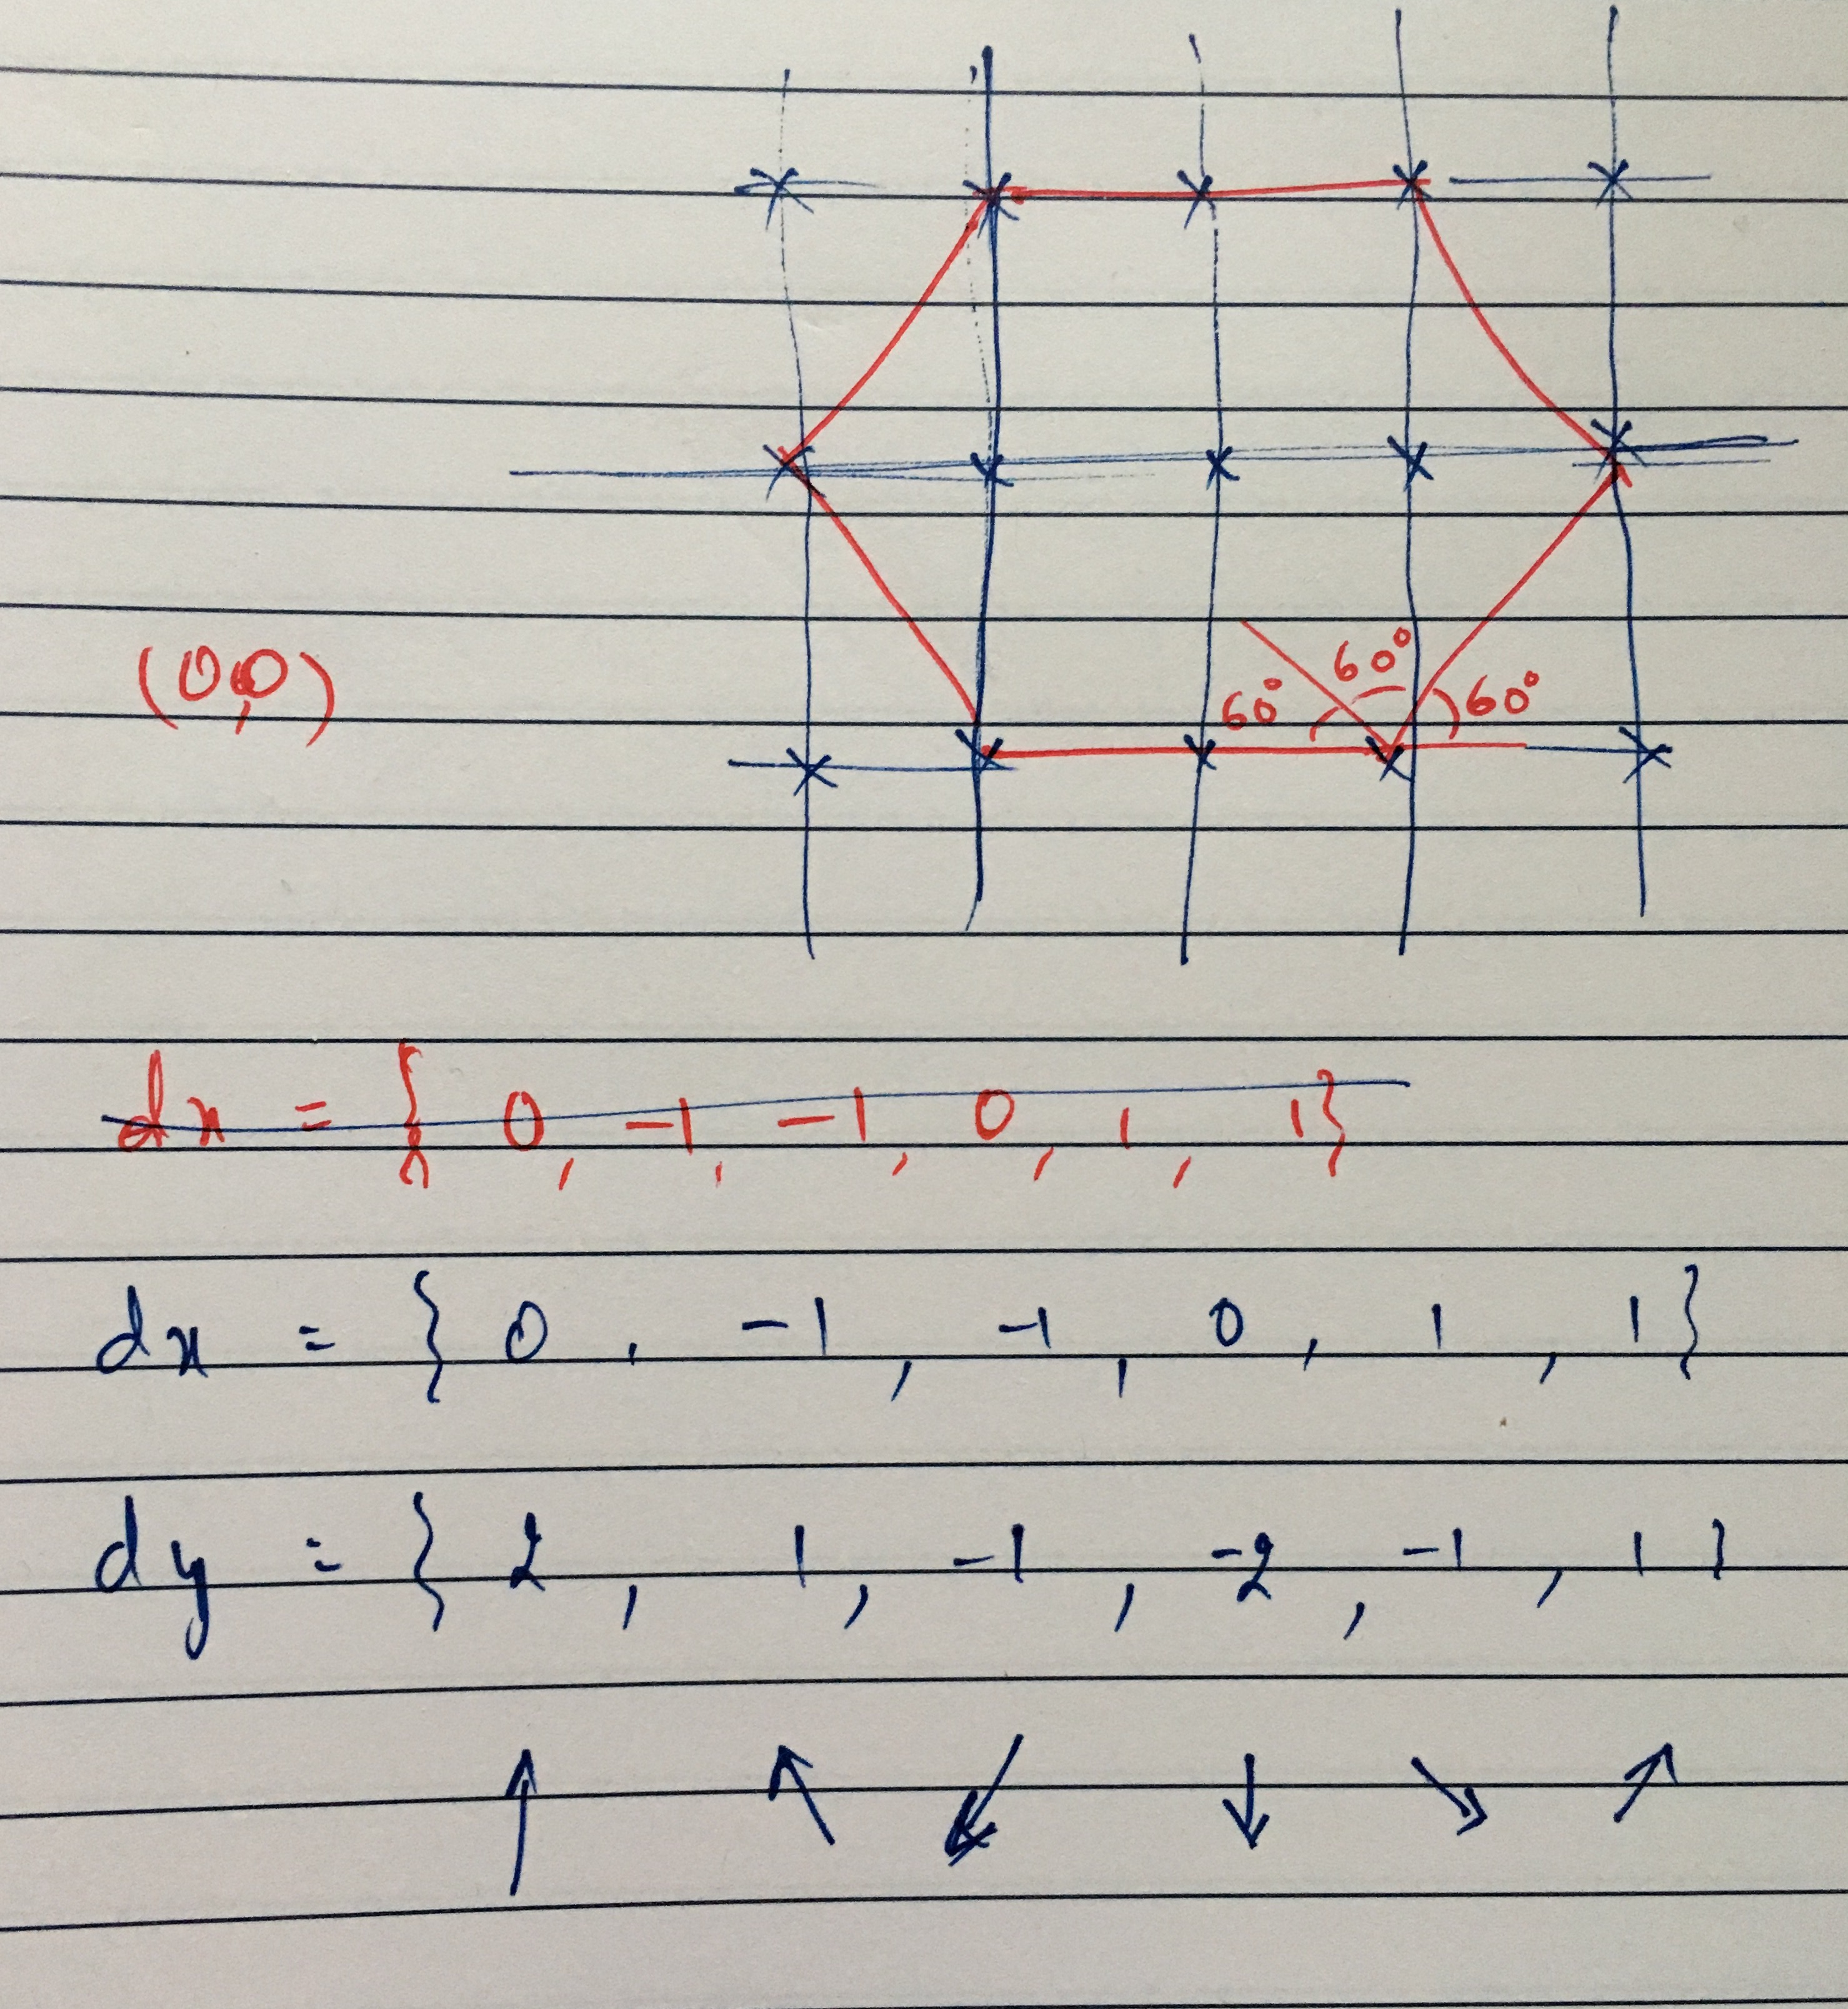 60° 60° 60°
(0,0)
dx = { 0, -1, -1, 0, 1, 1}
dx = { 0, -1, -1, 0, 1, 1}
dy = { 2, 1, -1, -2, -1, 1}
↑ ↖ ↙ ↓ ↘ ↗